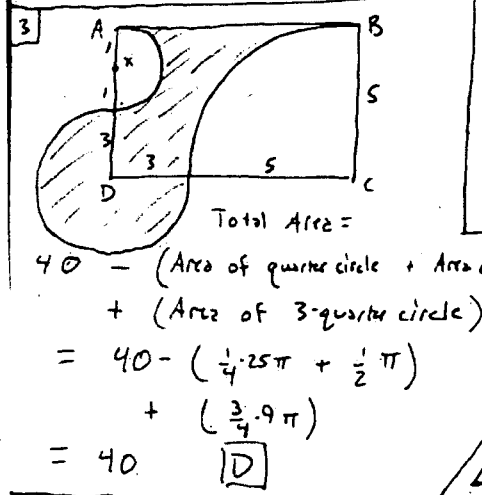 3
A B
1
x
1
3 3 5 5
D C
Total Area =
40 - (Area of quarter circle + Area
+ (Area of 3-quarter circle)
= 40 - ( 1/4 · 25π + 1/2 π )
+ ( 3/4 · 9π )
= 40 D